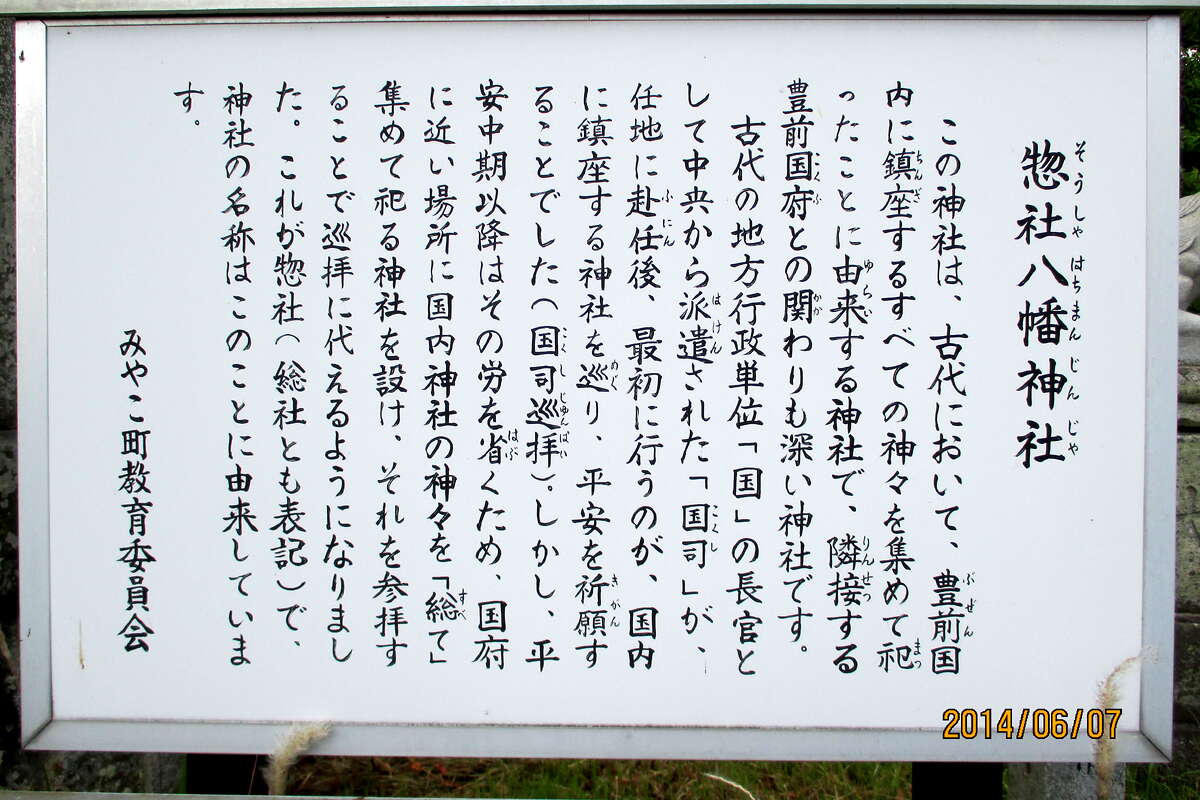 惣社八幡神社
そうしゃはちまんじんじゃ
この神社は、古代において、豊前国
ぶぜん
内に鎮座するすべての神々を集めて祀
ちんざ
まつ
ったことに由来する神社で、隣接する
ゆらい
りんせつ
豊前国府との関わりも深い神社です。
こくふ
かか
古代の地方行政単位「国」の長官と
して中央から派遣された「国司」が、
はけん
こくし
任地に赴任後、最初に行うのが、国内
ふにん
に鎮座する神社を巡り、平安を祈願す
めぐ
きがん
ることでした(国司巡拝)。しかし、平
こくしじゅんぱい
安中期以降はその労を省くため、国府
はぶ
に近い場所に国内神社の神々を「総て」
すべ
集めて祀る神社を設け、それを参拝す
ることで巡拝に代えるようになりまし
た。これが惣社(総社とも表記)で、
神社の名称はこのことに由来していま
す。
みやこ町教育委員会
2014/06/07